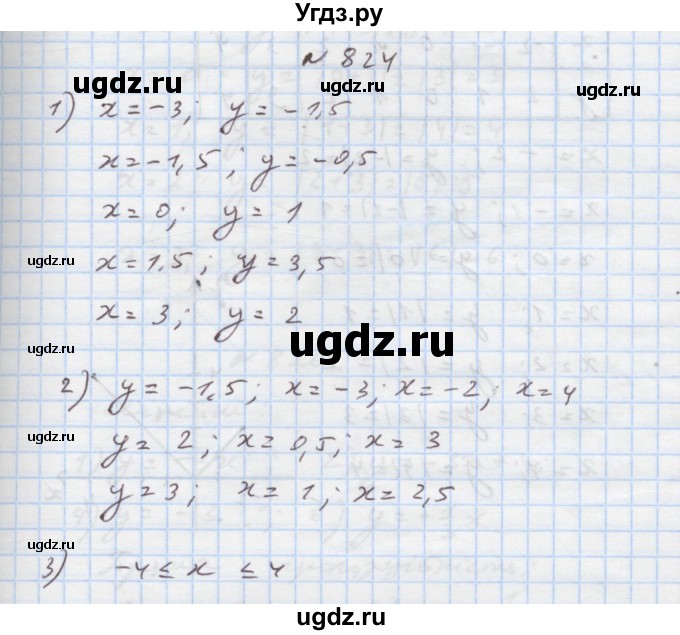 Угдз.ру
N 824
ugdz.ru
ugdz.ru
1) x = -3; y = -1,5
x = -1,5; y = -0,5
x = 0; y = 1
ugdz.ru
x = 1.5; y = 3,5
x = 3; y = 2
ugdz.ru
ugdz.ru
2) y = -1,5; x = -3; x = -2; x = 4
ugdz.ru
y = 2; x = 0,5; x = 3
y = 3; x = 1; x = 2,5
ugdz.ru
3) -4 ≤ x ≤ 4
ugdz.ru